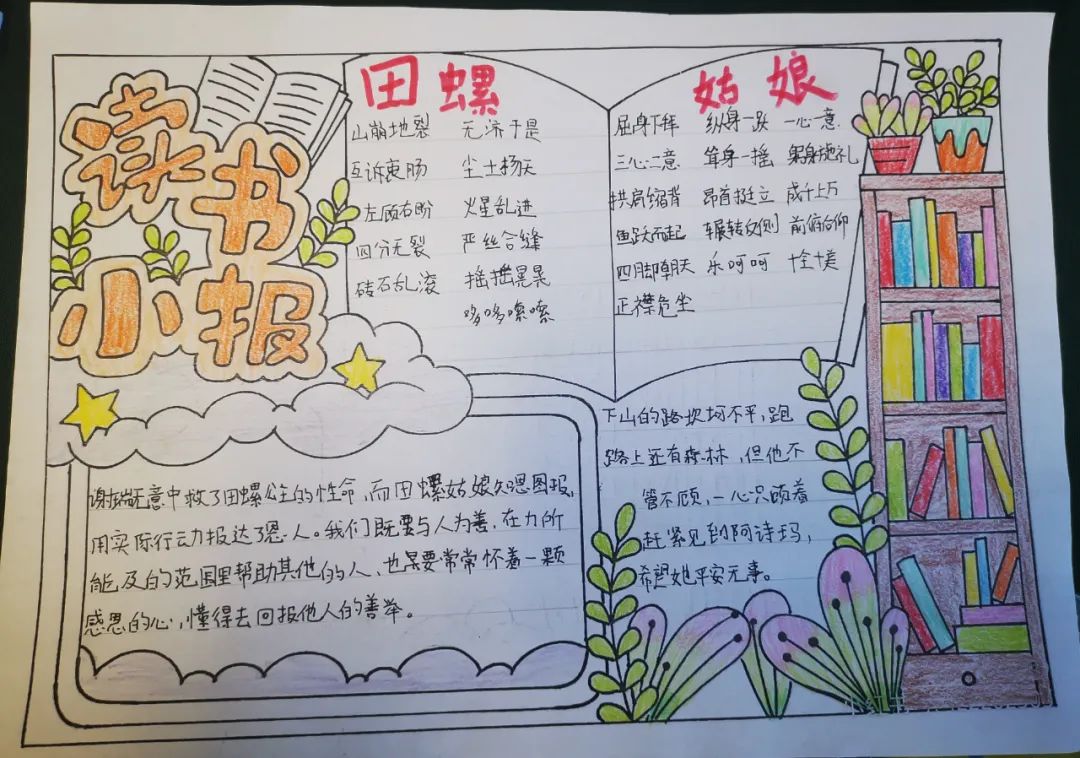 读书
小报
田螺 姑娘
山崩地裂 无济于是
互诉衷肠 尘土扬天
左顾右盼 火星乱进
四分无裂 严丝合缝
砖石乱滚 摇摇晃晃
哆哆嗦嗦
屈身下拜 纵身一跃 一心一意
三心二意 耸身一摇 躬身施礼
拱肩缩背 昂首挺立 成千上万
鱼跃而起 辗转反侧 前俯后仰
四脚朝天 乐呵呵 十全十美
正襟危坐
谢端无意中救了田螺公主的性命,而田螺姑娘知恩图报,
用实际行动报达了恩人。我们既要与人为善,在力所
能及的范围里帮助其他的人,也要常常怀着一颗
感恩的心,懂得去回报他人的善举。
下山的路坎坷不平,跑
路上还有森林,但他不
管不顾,一心只顾着
赶紧见到阿诗玛,
希望她平安无事。